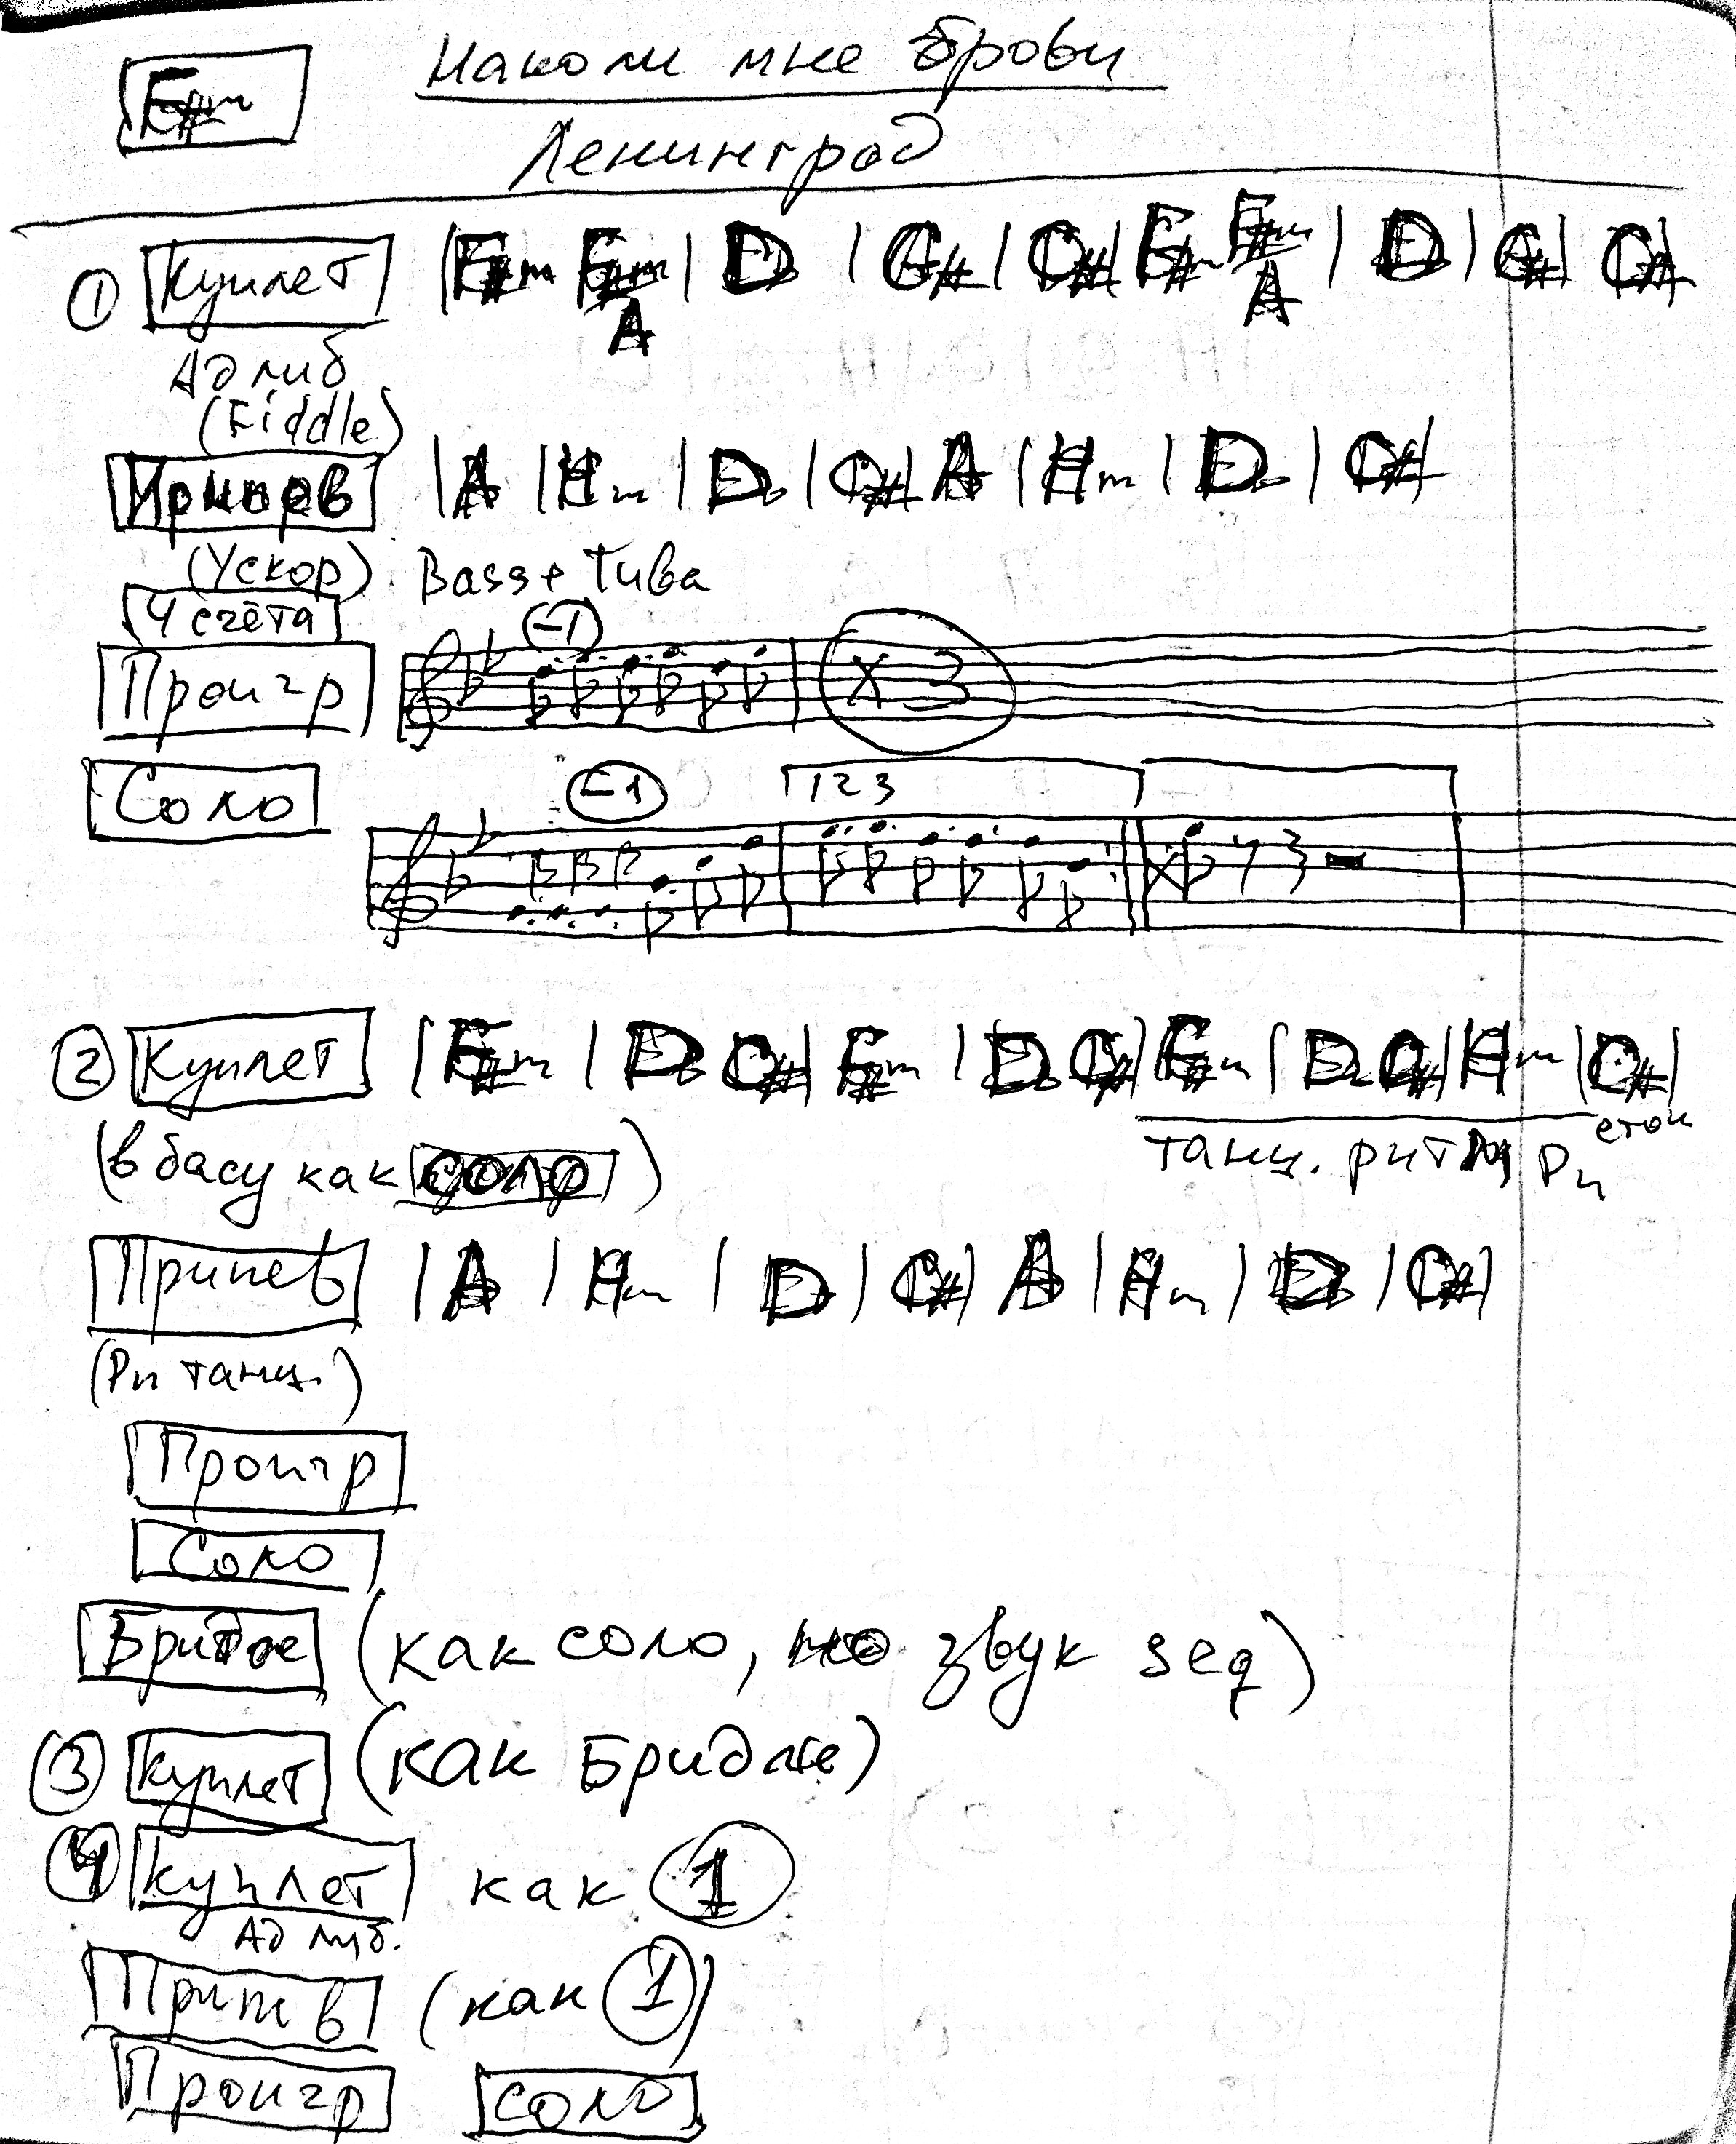 F#m Наколи мне брови
Ленинград
① Куплет | F#m F#m/A | D | C# | C# | F#m F#m/A | D | C# | C# |
Ад либ
(Fiddle)
Припев | A | Hm | D | C# | A | Hm | D | C# |
(Ускор) Bass + Tuba
4 счёта
Проигр -1 x 3
Соло -1 1 2 3
② Куплет | F#m | D C# | F#m | D C# | F#m | D C# | Hm | C# |
(в басу как соло) танц. ритм Рп стоп
Припев | A | Hm | D | C# | A | Hm | D | C# |
(Рп танц.)
Проигр
Соло
Бридже (как соло, но звук seq)
③ Куплет (как Бридже)
④ Куплет как ①
Ад либ.
Припев (как ①)
Проигр соло